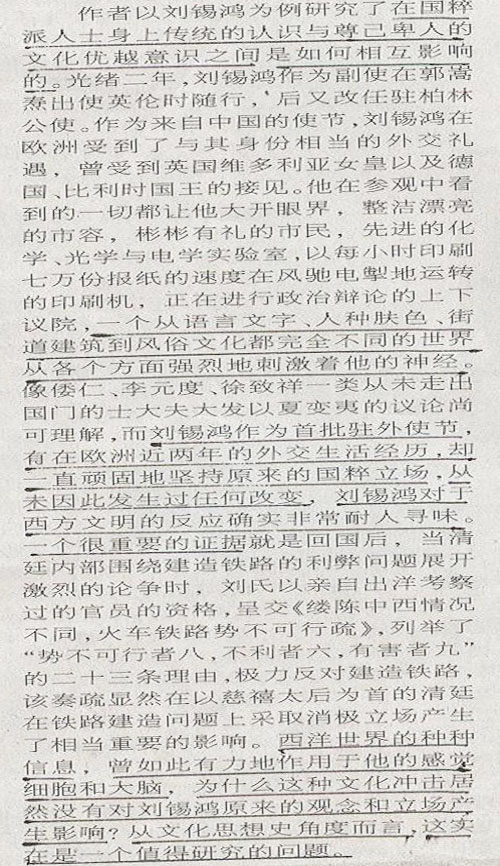 作者以刘锡鸿为例研究了在国粹
派人士身上传统的认识与尊己卑人的
文化优越意识之间是如何相互影响
的。光绪二年,刘锡鸿作为副使在郭嵩
焘出使英伦时随行,后又改任驻柏林
公使。作为来自中国的使节,刘锡鸿在
欧洲受到了与其身份相当的外交礼
遇,曾受到英国维多利亚女皇以及德
国、比利时国王的接见。他在参观中看
到的一切都让他大开眼界,整洁漂亮
的市容,彬彬有礼的市民,先进的化
学、光学与电学实验室,以每小时印刷
七万份报纸的速度在风驰电掣地运转
的印刷机,正在进行政治辩论的上下
议院,一个从语言文字、人种肤色、街
道建筑到风俗文化都完全不同的世界
从各个方面强烈地刺激着他的神经。
像倭仁、李元度、徐致祥一类从未走出
国门的士大夫大发以夏变夷的议论尚
可理解,而刘锡鸿作为首批驻外使节,
有在欧洲近两年的外交生活经历,却
一直顽固地坚持原来的国粹立场,从
未因此发生过任何改变,刘锡鸿对于
西方文明的反应确实非常耐人寻味。
一个很重要的证据就是回国后,当清
廷内部围绕建造铁路的利弊问题展开
激烈的论争时,刘氏以亲自出洋考察
过的官员的资格,呈交《缕陈中西情况
不同,火车铁路势不可行疏》,列举了
“势不可行者八,不利者六,有害者九”
的二十三条理由,极力反对建造铁路,
该奏疏显然在以慈禧太后为首的清廷
在铁路建造问题上采取消极立场产生
了相当重要的影响。西洋世界的种种
信息,曾如此有力地作用于他的感觉
细胞和大脑,为什么这种文化冲击居
然没有对刘锡鸿原来的观念和立场产
生影响?从文化思想史角度而言,这实
在是一个值得研究的问题。